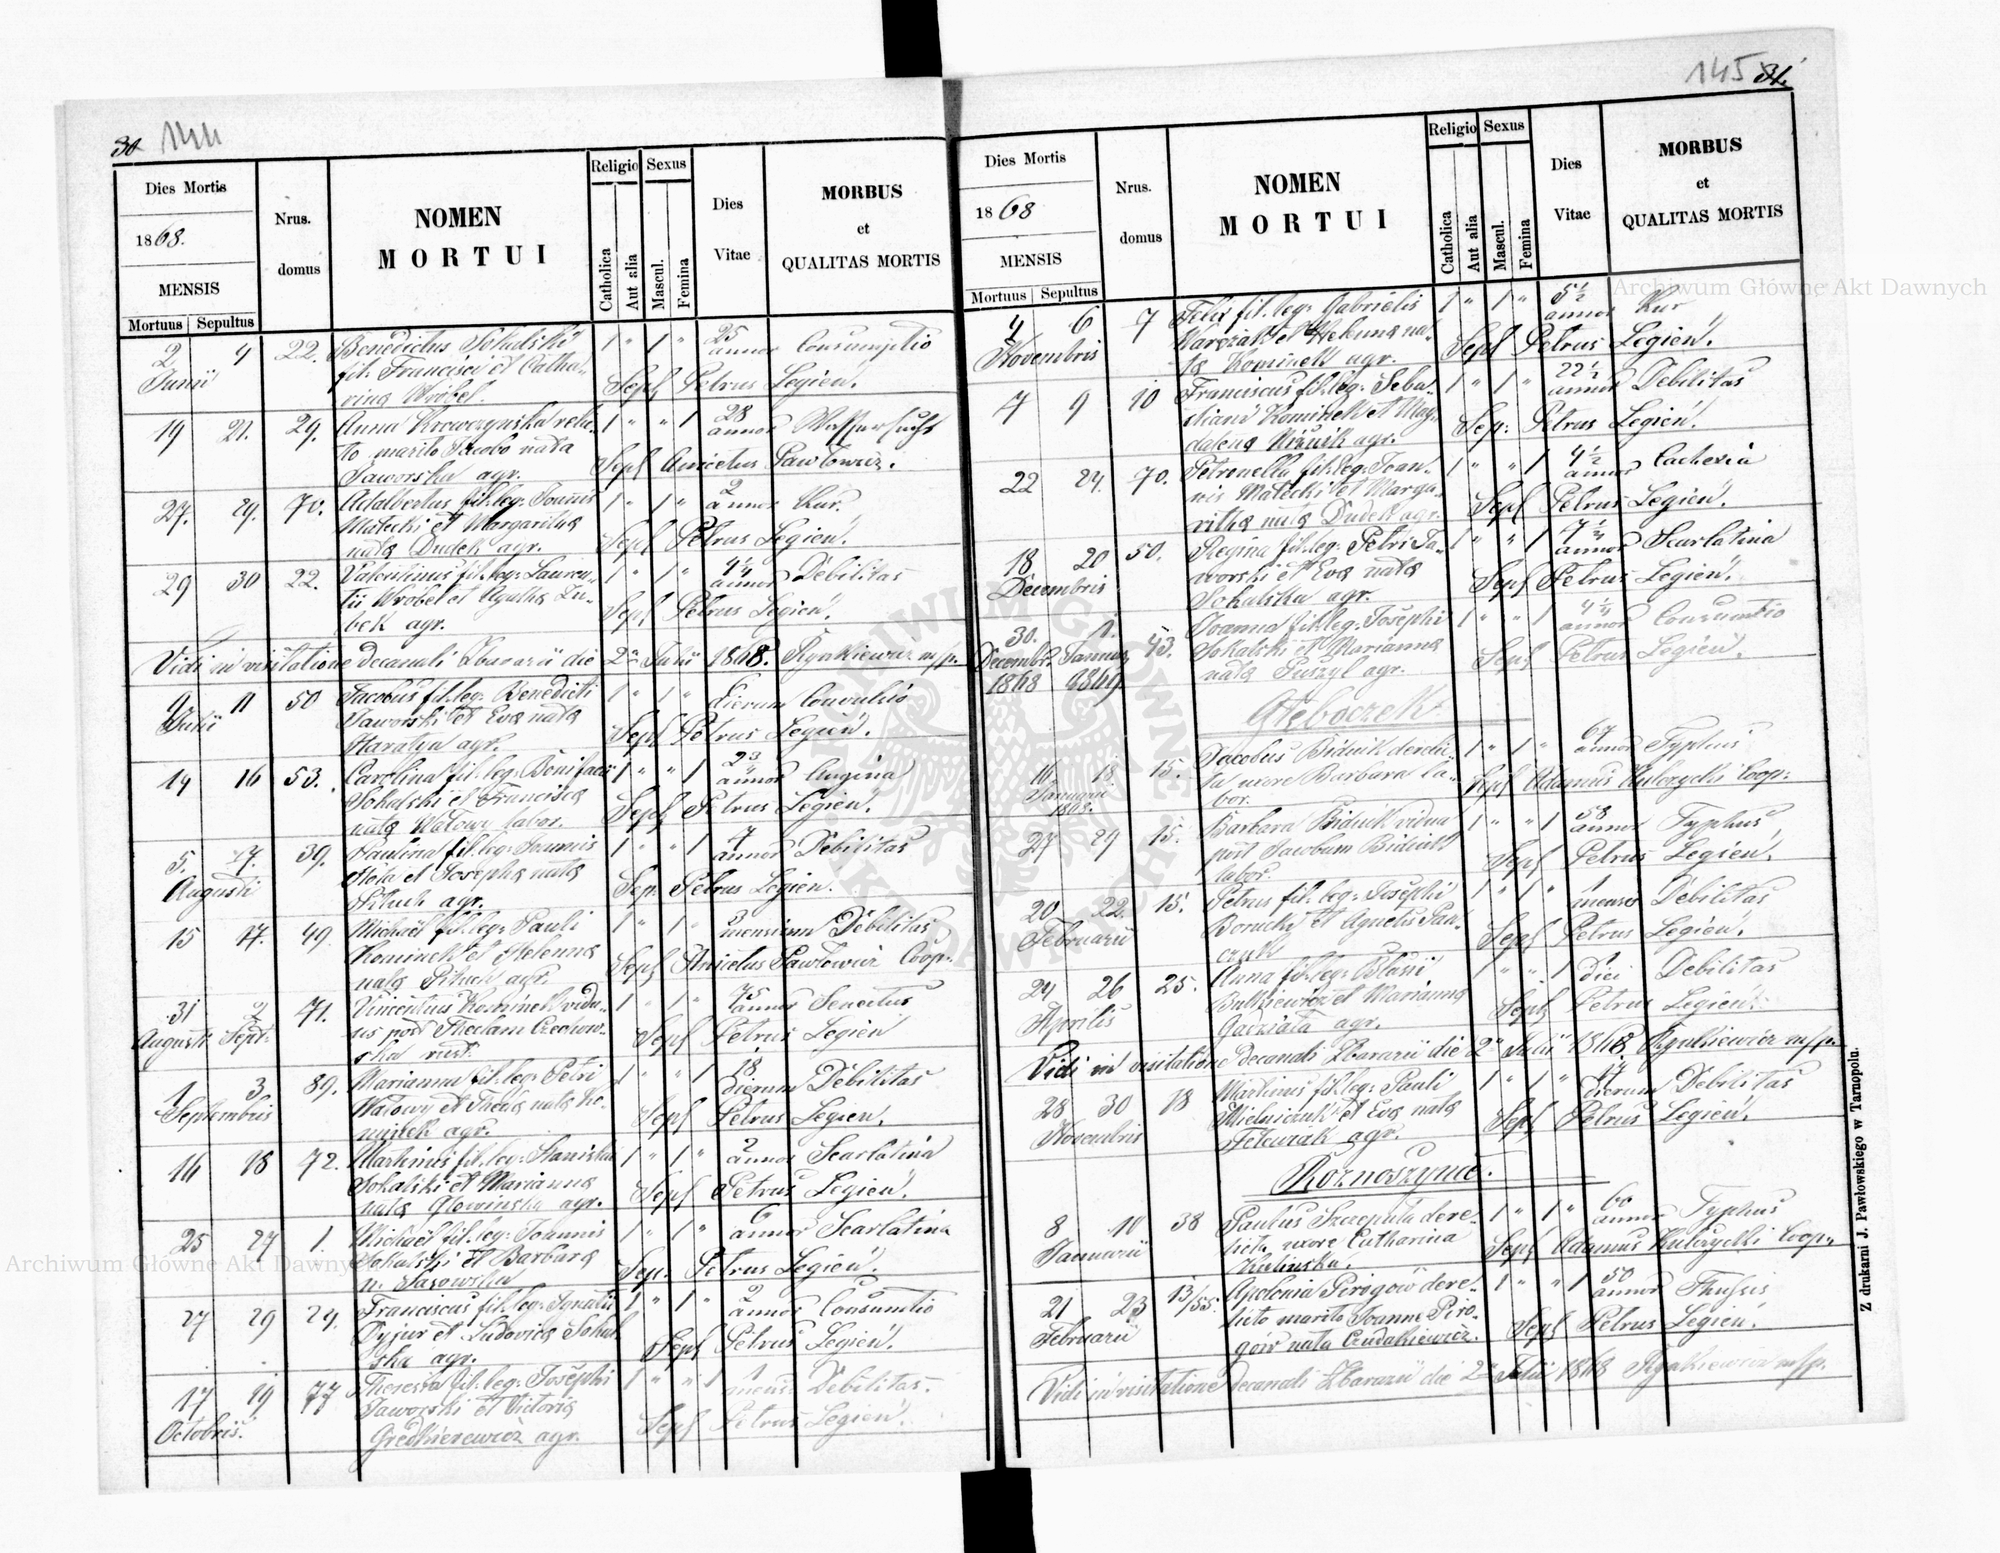 30 144
Dies Mortis
1868.
MENSIS
Mortuus Sepultus
Nrus. domus
NOMEN
MORTUI
Religio Sexus
Catholica Aut alia Mascul. Femina
Dies Vitae
MORBUS
et
QUALITAS MORTIS
2 4 22. Benedictus Sokalski 1 " 1 " 25 annor Consumptio
Junii fil: Francisci et Catha-
rina Wróbel. Sepl Petrus Legień.
19 21. 29. Anna Krowczynska relic- 1 " " 1 28 annor Wassersucht
to marito Jacobo nata
Jaworska agr. Sepl Anicetus Pawłowicz.
27. 29. 70. Adalbertus fil: leg: Joannis 1 " 1 " 2 annor Kur.
Małecki et Margaritha
nata Dudek agr. Sepl Petrus Legień.
29 30 22. Valentinus fil: leg: Lauren- 1 " 1 " annor Debilitas
tii Wróbel et Agatha
agr. Sepl Petrus Legień.
Vidi in visitatione decanali Zbarazii die 2a Julii 1868. m/p.
9 11 50 Jacobus fil: leg: Benedicti 1 " 1 " dierum Convulsio
Julii Jaworski et Eva nata
agr. Sepl Petrus Legień.
14 16 53. Carolina fil: leg: Bonifacii 1 " " 1 annor Angina
Sokalski et Francisca
nata Watowy labor. Sepl Petrus Legień.
5. 7. 39. Paulina fil: leg: Joannis 1 " " 1 annor Debilitas
Augusti et Josepha nata
Pituch agr. Sep: Petrus Legień.
15 17. 49. Michaël fil: leg: Pauli 1 " 1 " 3 mensium Debilitas
Kominek et Helenna
nata Pituch agr. Sepl Anicetus Pawłowicz Coop.
31 2 71. Vincentius Kominek vidu- 1 " 1 " 75 annor Senectus
Augusti Sept. us post Theclam
rust. Sepl Petrus Legień
1 3 89. Marianna fil: leg: Petri 1 " " 1 18 dierum Debilitas
Septembris Watowy et Thecla nata Ko-
minek agr. Sepl Petrus Legien.
16 18 72. Martinus fil: leg: Stanislai 1 " 1 " 2 annor Scarlatina
Sokalski et Marianna
nata Głowinska agr. Sepl Petrus Legień.
25 27 1. Michaël fil: leg: Joannis 1 " 1 " 6 annor Scarlatina
Sokalski et Barbara
n. Sep. Petrus Legień.
27 29 29. Franciscus fil: leg: Ignatii 1 " 1 " 2 annor Consumtio
et Ludovica Sokal-
ska agr. Sepl Petrus Legień.
17 19 77 Theresia fil: leg: Josephi 1 " " 1 1 mensi Debilitas.
Octobris. Jaworski et Victoria
agr. Sepl Petrus Legień.
145 31.
Dies Mortis
1868
MENSIS
Mortuus Sepultus
Nrus. domus
NOMEN
MORTUI
Religio Sexus
Catholica Aut alia Mascul. Femina
Dies Vitae
MORBUS
et
QUALITAS MORTIS
4 6 7 Felix fil: leg: Gabrielis 1 " 1 " 5 1/2 annor Kur
Novembris Karczak et Helenna na-
ta Kominek agr. Sepl Petrus Legień.
7 9 10 Franciscus fil: leg: Seba- 1 " 1 " 22 1/2 annor Debilitas
stiani Kominek et Mag-
dalena agr. Sep: Petrus Legień.
22 24. 70. Petronella fil: leg: Joan- 1 " " 1 4 1/2 annor Cachexia
nis Małecki et Marga-
ritha nata Dudek agr. Sepl Petrus Legień.
18 20 50. Regina fil: leg: Petri Ja- 1 " " 1 annor Scarlatina
Decembris worski et Eva nata
Sokalska agr. Sepl Petrus Legień.
30. 1. 43. Joanna fil: leg: Josephi 1 " " 1 annor Consumtio
Decembr. Januar. Sokalski et Marianna
1868 1869. nata Puszyl agr. Sepl Petrus Legień.
Głęboczek
16 18 15. Jacobus Bidiuk derelic- 1 " 1 " 67 annor Typhus
Januarii ta uxore Barbara la-
1868. bor. Sepl Adamus Kulczycki Coop:
27 29 15. Barbara Bidiuk vidua 1 " " 1 58 annor Typhus
post Jacobum Bidiuk
labor. Sepl Petrus Legień.
20 22. 15. Petrus fil: leg: Josephi 1 " 1 " 1 mense Debilitas
Februarii Borucki et Agnetis Paw-
czuk Sepl Petrus Legień.
24 26 25. Anna fil: leg: Blasii 1 " " 1 1 diei Debilitas
Aprilis Butkiewicz et Marianna
agr. Sepl Petrus Legień.
Vidi in visitatione decanali Zbarazii die 2a Julii 1868. m/p.
28 30 18 Martinus fil: leg: Pauli 1 " 1 " 17 dierum Debilitas
Novembris Mielniczuk et Eva nata
agr. Sepl Petrus Legień.
Roznoszynce.
8 10 38 Paulus Szczepula dere- 1 " 1 " 60 annor Typhus
Januarii licta uxore Catharina
Sepl Adamus Kulczycki Coop.
21 23 13/55. Apolonia Pirogow dere- 1 " " 1 50 annor Thysis
Februarii licto marito Joanne Piro-
gów nata Sepl Petrus Legień.
Vidi in visitatione decanali Zbarazii die 2a Julii 1868 m/p.
Z drukarni J. Pawłowskiego w Tarnopolu.
Archiwum Główne Akt Dawnych
Archiwum Główne Akt Dawnych
ARCHIWUM GŁÓWNE AKT DAWNYCH